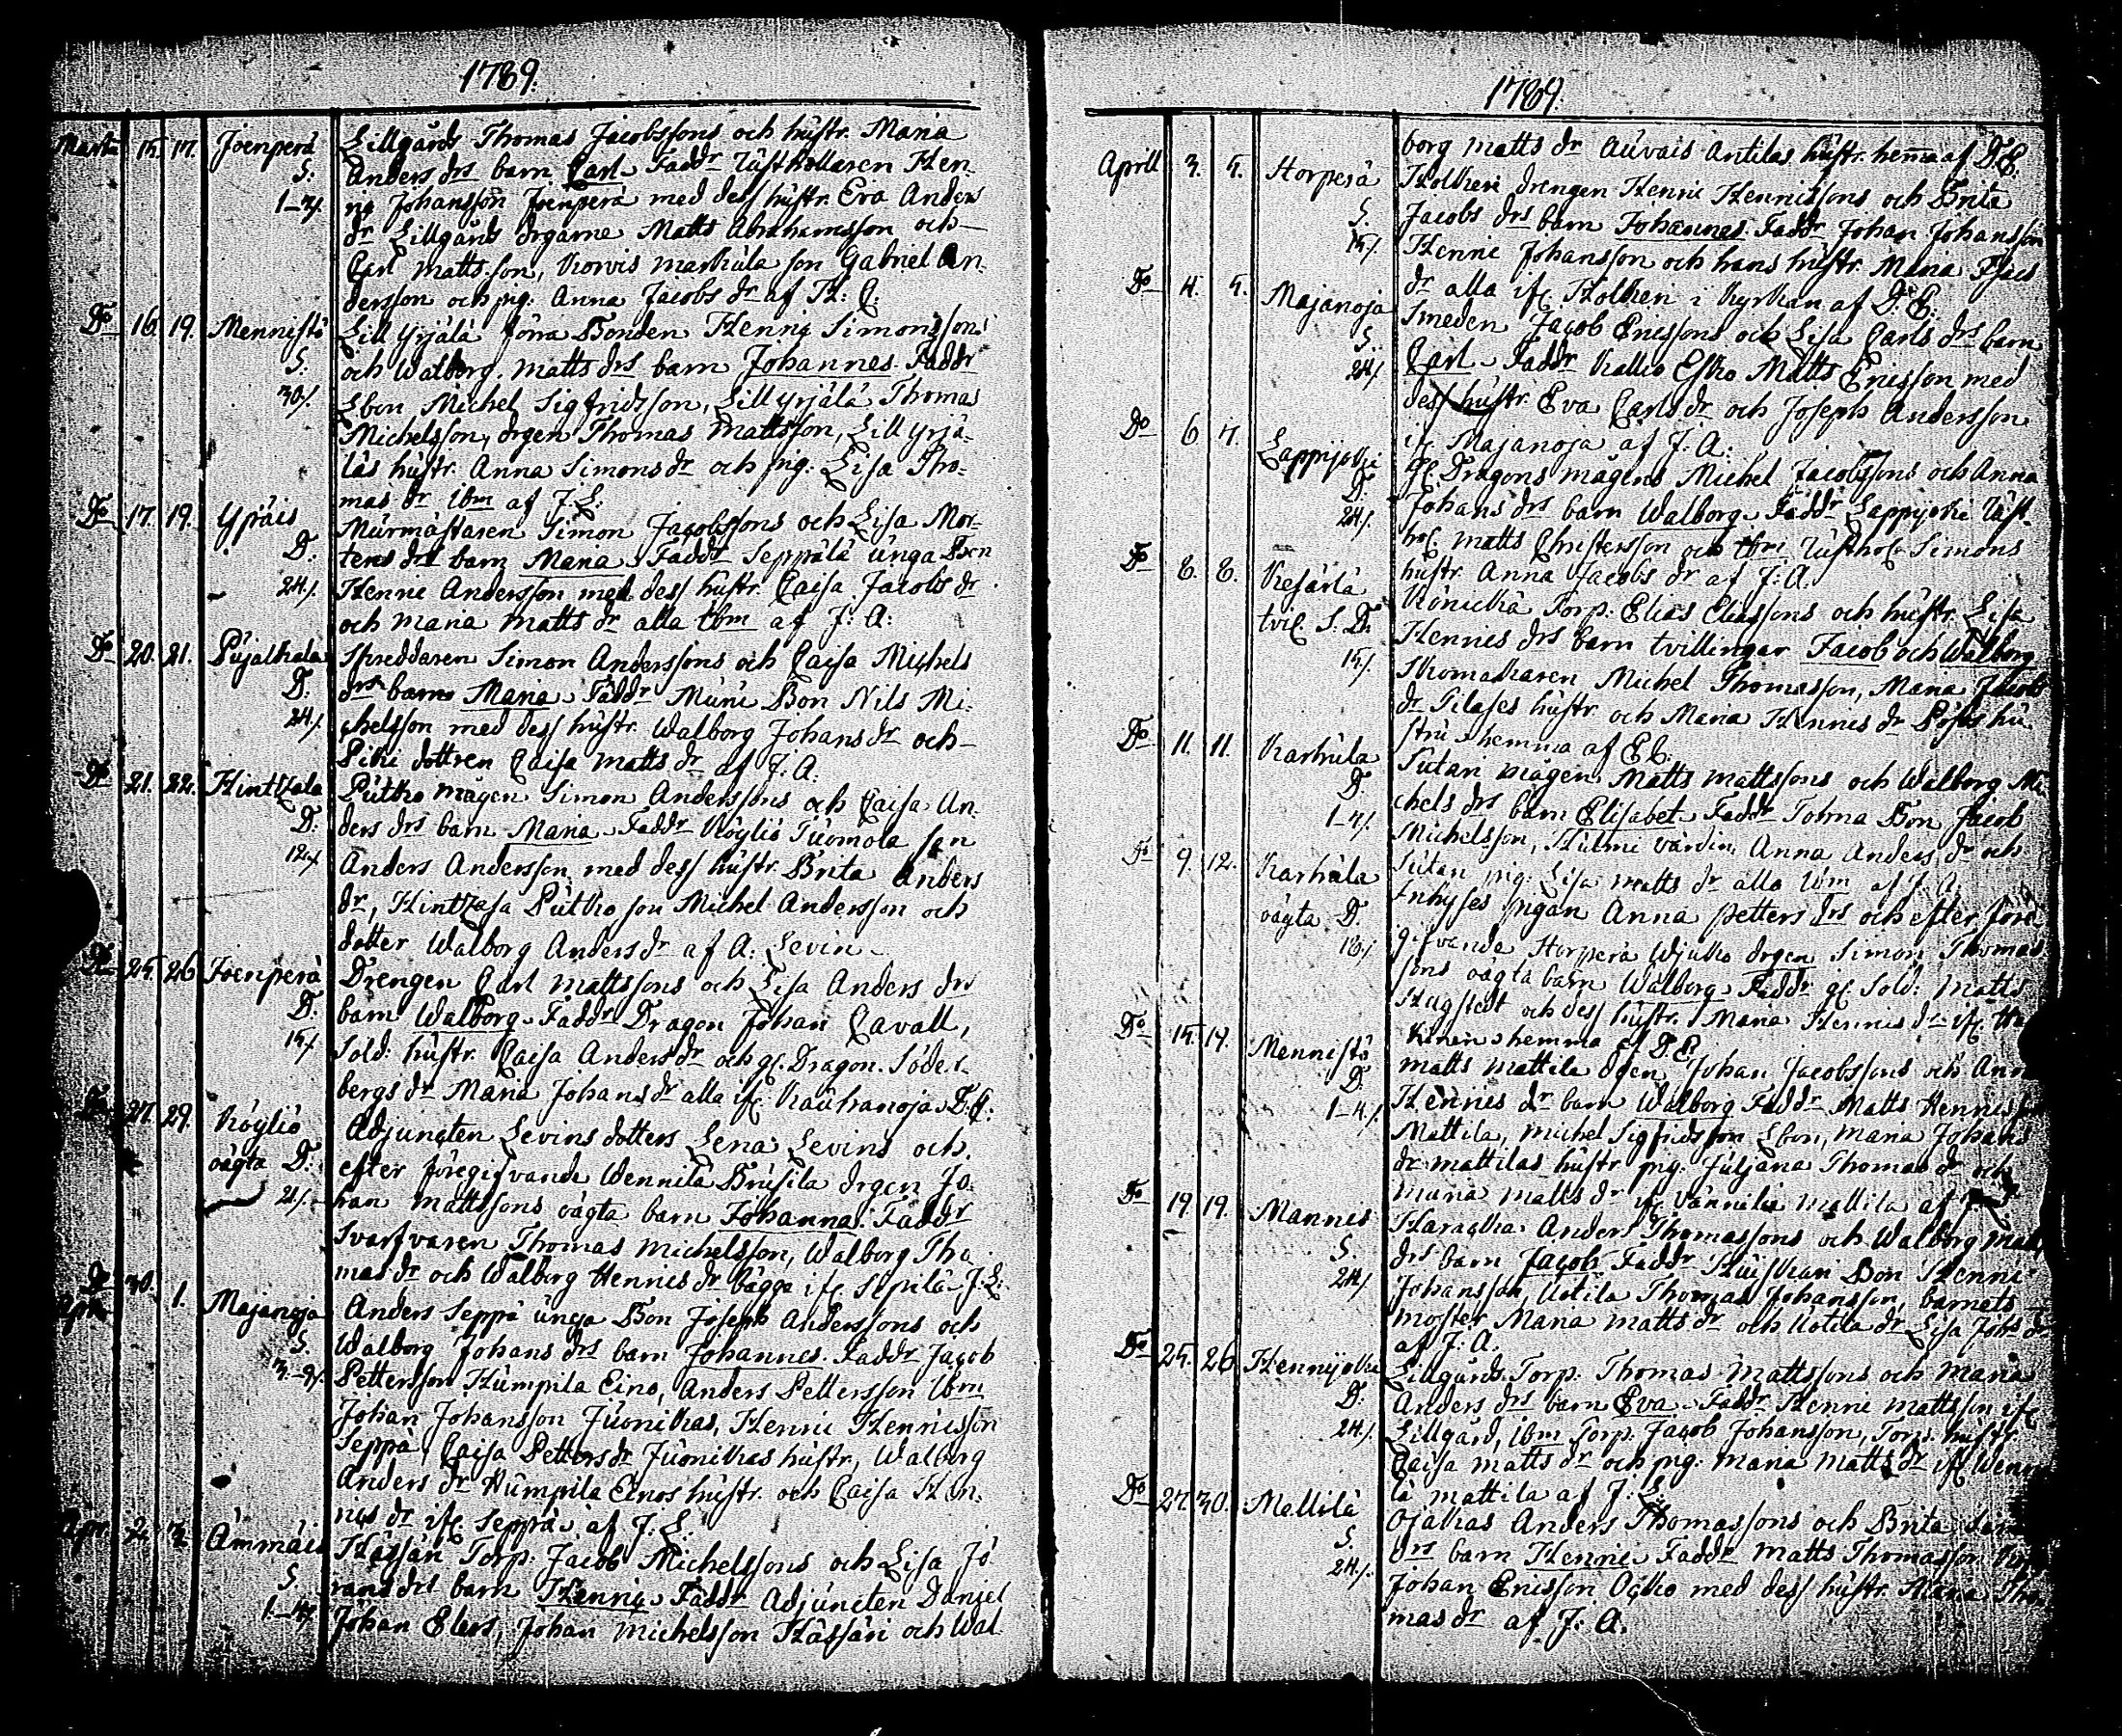 1789.
Martii 15. 17. Joenperä Lillgårds Thomas Jacobssons och hustr. Maria
S: Anders drs barn Carl. Faddr Rusthollaren Hen-
1-4/. ric Johansson Joenperä med dess hustr. Eva Anders
dr Lillgårds drgarne Matts Abrahamsson och
Carl Mattsson, Korvis Markula son Gabriel An-
dersson och pig: Anna Jacobs dr af H: C:
Do 16. 19. Mennistö Lill Yrjälä förra Bonden Henric Simonssons
S: och Walborg Matts drs barn Johannes. Faddr
30/. Ebon Michel Sigfridsson, Lill yrjälä Thomas
Michelsson, drgen Thomas Mattsson, Lill yrjä-
läs hustr. Anna Simons dr och pig: Lisa Tho-
mas dr ibm af J: L:
Do 17. 19. Ypäis Murmästaren Simon Jacobssons och Lisa Mor-
D: tens drs barn Maria. Faddr Seppälä unga Bon
24/. Henric Andersson med dess hustr. Caisa Jacobs dr
och Maria Matts dr alla ibm af J: A:
Do 20. 21. Pujalkala Skreddaren Simon Anderssons och Caisa Michels
D: drs barn Maria. Faddr Muni Bon Nils Mi-
24/. chelsson med dess hustr. Walborg Johans dr och
Piki dottren Caisa Matts dr af J. A:
Do 21. 22. Hinttzala Puttko mågen Simon Anderssons och Caisa An-
D: ders drs barn Maria. Faddr Köyliö Tuomola son
12/. Anders Andersson med dess hustr. Brita Anders
dr, Hinttzasa Puttko son Michel Andersson och
dotter Walborg Anders dr af A: Levin
Do 25. 26 Joenperä Drengen Carl Mattssons och Lisa Anders drs
D: barn Walborg. Faddr Dragon Johan Cavall,
15/. Sold: hustr. Caisa Anders dr och gl. Dragon. Söder-
bergs dr Maria Johans dr alla ifr Kauhanoja D: E:
Do 27. 29. Köyliö Adjuncten Levins dotters Lena Levins och
oägta D: efter föregifvande Wennilä Brusila drgen Jo-
21/. han Mattssons oägta barn Johanna. Faddr
Svarfvaren Thomas Michelsson, Walborg Tho-
mas dr och Walborg Hennis dr bägge ifr Sepilä J: L:
Do 30. Apr. 1. Majanoja Anders Seppä unga Bon Joseph Anderssons och
S. Walborg Johans drs barn Johannes. Faddr Jacob
Pettersson Humpila Eino, Anders Pettersson ibm
Johan Johansson Juonikas, Henric Henricsson
Seppä, Caisa Petters dr Juonikas hustr, Walborg
Anders dr Humpila Einos hustr. och Caisa Hen-
nis dr ifr Seppä af J: L:
Apr. 2. 3. Ämmäis Hässän Torp: Jacob Michelssons och Lisa Jö-
S. rans drs barn Henric. Faddr Adjuncten Daniel
1-4/. Johan Elers, Johan Michelsson Hässäri och Wal
1789.
borg Matts dr Auvais Antilas hustr. hemma af D: E:
Aprill 3. 5. Horperä Holkeri drengen Henric Henricssons och Brita
S. Jacobs drs barn Johannes. Faddr Johan Johansson
15/. Henric Johansson och hans hustr. Maria
dr alla ifr Holkeri i Kyrkan af D: E:
Do 4. 5. Majanoja Smeden Jacob Ericssons och Lisa Carls drs barn
S. Carl. Faddr Kallio Esko Matts Ericsson med
24/. dess hustr. Eva Carls dr och Joseph Andersson
ifr Majanoja af J: A:
Do 6 7. Lappijoki gl. Dragons mågens Michel Jacobssons och Anna
D. Johans drs barn Walborg. Faddr Lappijoki Rust-
24/. hol. Matts Christersson och ibm Rusthol. Simons
hustr. Anna Jacobs dr af J: A.
Do 8. 8. Kesärlä Könickä Torp: Elias Eliassons och hustr. Lisa
tvil. S. D. Hennis drs barn tvillingar Jacob och Walborg
15/. Skomakaren Michel Thomasson, Maria Jacobs
dr Silases hustr. och Maria Hennis dr hu-
stru hemma af E E:
Do 11. 11. Karhula Sutari mågen Matts Mattssons och Walborg Mi-
D. chels drs barn Elisabet. Faddr Tolma Bon Jacob
1-4/. Michelsson, Hulmi värdin Anna Anders dr och
Sutari pig: Lisa Matts dr alla ibm af J: A:
Do 9. 12. Karhula Inhyses pigan Anna Petters drs och efter före
oägta D. gifvande Horperä Wjukko drgen Simon Thomas
18/. sons oägta barn Walborg. Faddr gl. Sold: Matts
Hagstedt och dess hustr. Maria Hennis dr ifr
hemma af D. E.
Do 15. 19. Mennistö Matts Mattila dgen Johan Jacobssons och Anna
D: Hennis dr barn Walborg Faddr Matts Hennis
1-4/. Mattila, Michel Sigfridsson Ebon, Maria Johans
dr Mattilas hustr pig: Juljana Thomas dr och
Maria Matts dr ifr Vännilä Mattila af J
Do 19. 19. Mannis Haracka Anders Thomassons och Walborg Matts
S. drs barn Jacob Faddr Huiskari Bon Henric
24/. Johansson, Uotila Thomas Johansson, barnets
moster Maria Matts dr och Uotila dr Lisa Johs dr
af J: A.
Do 25. 26 Hennijoki Lillgårds Torp: Thomas Mattssons och Maria
D. Anders drs barn Eva. Faddr Henric Mattsson ifr
24/. Lillgård, ibm Torp: Jacob Johansson, Torp: hustr
Caisa Matts dr och pig: Maria Matts dr ifr Wenni
lä Mattila af J: L:
Do 27. 30. Mellilä Ojakas Anders Thomassons och Brita
S. drs barn Henric. Faddr Matts Thomasson
24/. Johan Ericsson Ojakko med dess hustr. Maria Tho
mas dr af J: A.